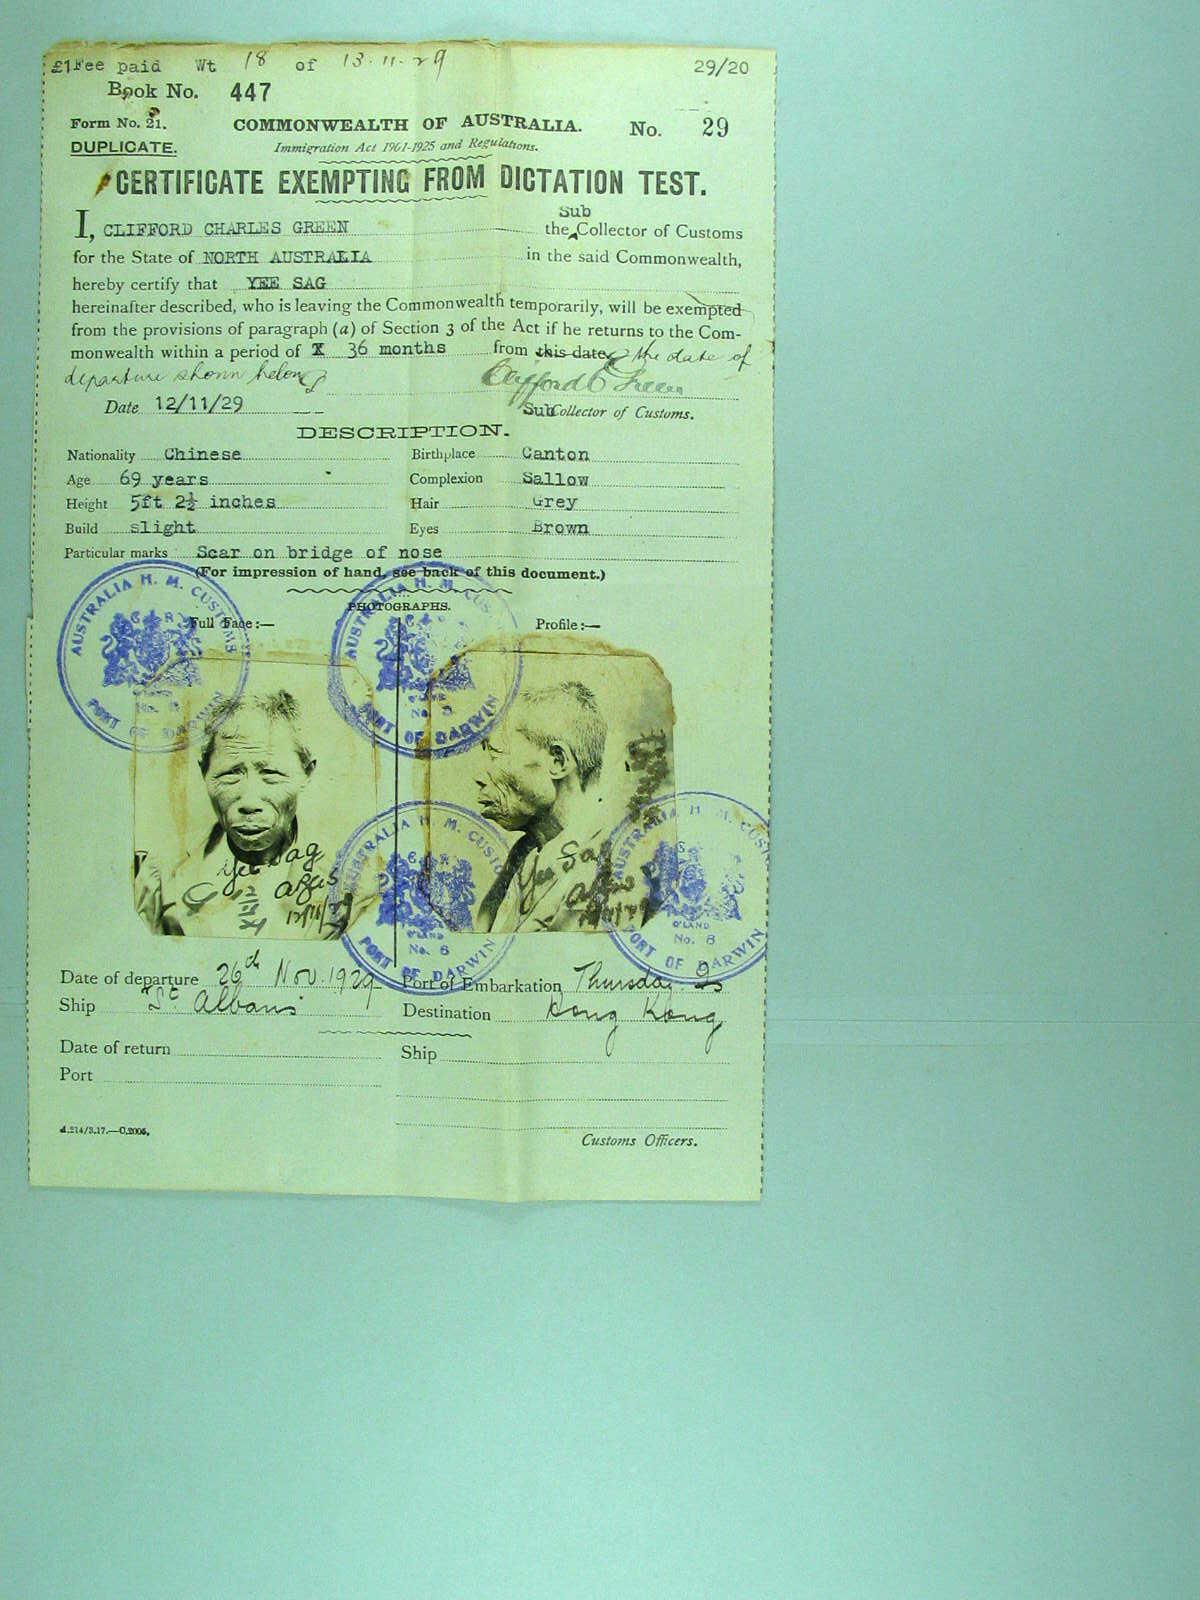 £1 Fee paid Wt 18 of 13.11.29
29/20
Book No. 447
Form No. 21.
COMMONWEALTH OF AUSTRALIA.
No. 29
DUPLICATE.
Immigration Act 1901-1925 and Regulations.
CERTIFICATE EXEMPTING FROM DICTATION TEST.
Sub
I, CLIFFORD CHARLES GREEN the Collector of Customs
for the State of NORTH AUSTRALIA in the said Commonwealth,
hereby certify that YEE SAG
hereinafter described, who is leaving the Commonwealth temporarily, will be exempted
from the provisions of paragraph (a) of Section 3 of the Act if he returns to the Com-
monwealth within a period of X 36 months from this date the date of
departure shown below
Clifford C Green
Date 12/11/29
Sub Collector of Customs.
DESCRIPTION.
Nationality Chinese Birthplace Canton
Age 69 years Complexion Sallow
Height 5ft 2½ inches Hair Grey
Build slight Eyes Brown
Particular marks Scar on bridge of nose
(For impression of hand, see back of this document.)
PHOTOGRAPHS.
Full Face:—
Profile:—
AUSTRALIA H. M. CUSTOMS
G R
No. 8
PORT OF DARWIN
AUSTRALIA H. M. CUS
G
Q'LAND
No. 8
PORT OF DARWIN
Yee Sag
Yee Sag
AUSTRALIA H M CUSTO
G R
Q'LAND
No. 8
PORT OF DARWIN
AUSTRALIA H M. CUS
G
Q'LAND
No. 8
PORT OF DARWIN
Date of departure 26th Nov. 1929 Port of Embarkation Thursday Is
Ship St Albans Destination Hong Kong
Date of return Ship
Port
A.214/3.17.—C.2005.
Customs Officers.